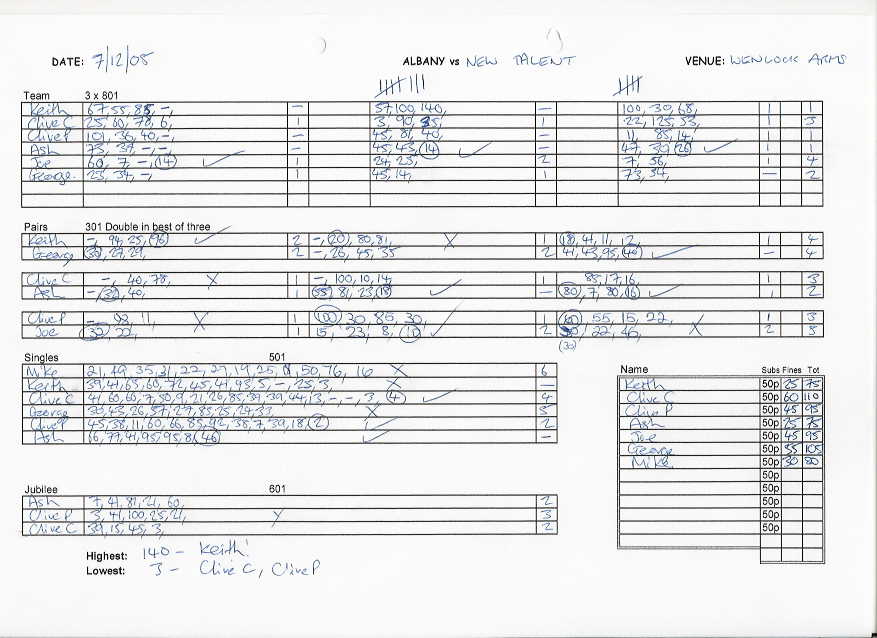 DATE: 7/12/05 ALBANY vs NEW TALENT VENUE: WENLOCK ARMS
Team 3 x 801
Keith 67, 55, 85, -, - 57, 100, 140, - 100, 30, 68, 1 1
Clive C 25, 60, 78, 6, 1 3, 90, 35, 1 22, 125, 53, 1 3
Clive P 101, 36, 40, -, - 45, 81, 40, - 11, 85, 14, 1 1
Ash 73, 37, -, -, - 45, 43, 14 - 47, 39, 26 1 1
Joe 60, 7, -, 14 1 24, 23, 2 7, 56, 1 4
George 23, 34, -, 1 45, 14, 1 73, 34, - 2
Pairs 301 Double in best of three
Keith -, 94, 25, 96 2 -, 20, 80, 81, X 1 18, 41, 11, 12, 1 4
George 30, 27, 29, 2 -, 26, 45, 35 2 41, 43, 95, 40 - 4
Clive C -, 40, 78, X 1 -, 100, 10, 14, 1 85, 17, 16, 1 3
Ash -, 32, 40, 1 55, 81, 23, 13 - 80, 7, 80, 16 1 2
Clive P 11, X 1 100, 30, 85, 30, 1 60, 55, 15, 22, 1 3
Joe 32, 22, 1 15, 23, 8, 10 2 22, 46, X 2 5
(30)
Singles 501
Mike 21, 49, 35, 31, 22, 27, 19, 25, 50, 76, 16 X 6
Keith 39, 41, 63, 60, 72, 45, 41, 93, 5, -, 25, 3, X -
Clive C 41, 60, 60, 7, 50, 9, 21, 26, 85, 39, 39, 44, 13, -, -, 3, 4 4
George 30, 43, 26, 57, 27, 85, 25, 24, 33, X 5
Clive P 45, 38, 11, 60, 66, 85, 42, 38, 7, 39, 18, 2 2
Ash 66, 77, 41, 95, 95, 81, 46 -
Jubilee 601
Ash 7, 41, 81, 21, 60, 2
Clive P 3, 41, 100, 25, 21, X 3
Clive C 39, 15, 45, 3, 2
Highest: 140 - Keith!
Lowest: 3 - Clive C, Clive P
Name Subs Fines Tot
Keith 50p 25 75
Clive C 50p 60 110
Clive P 50p 45 95
Ash 50p 25 75
Joe 50p 45 95
George 50p 55 105
Mike 50p 30 80
50p
50p
50p
50p
50p